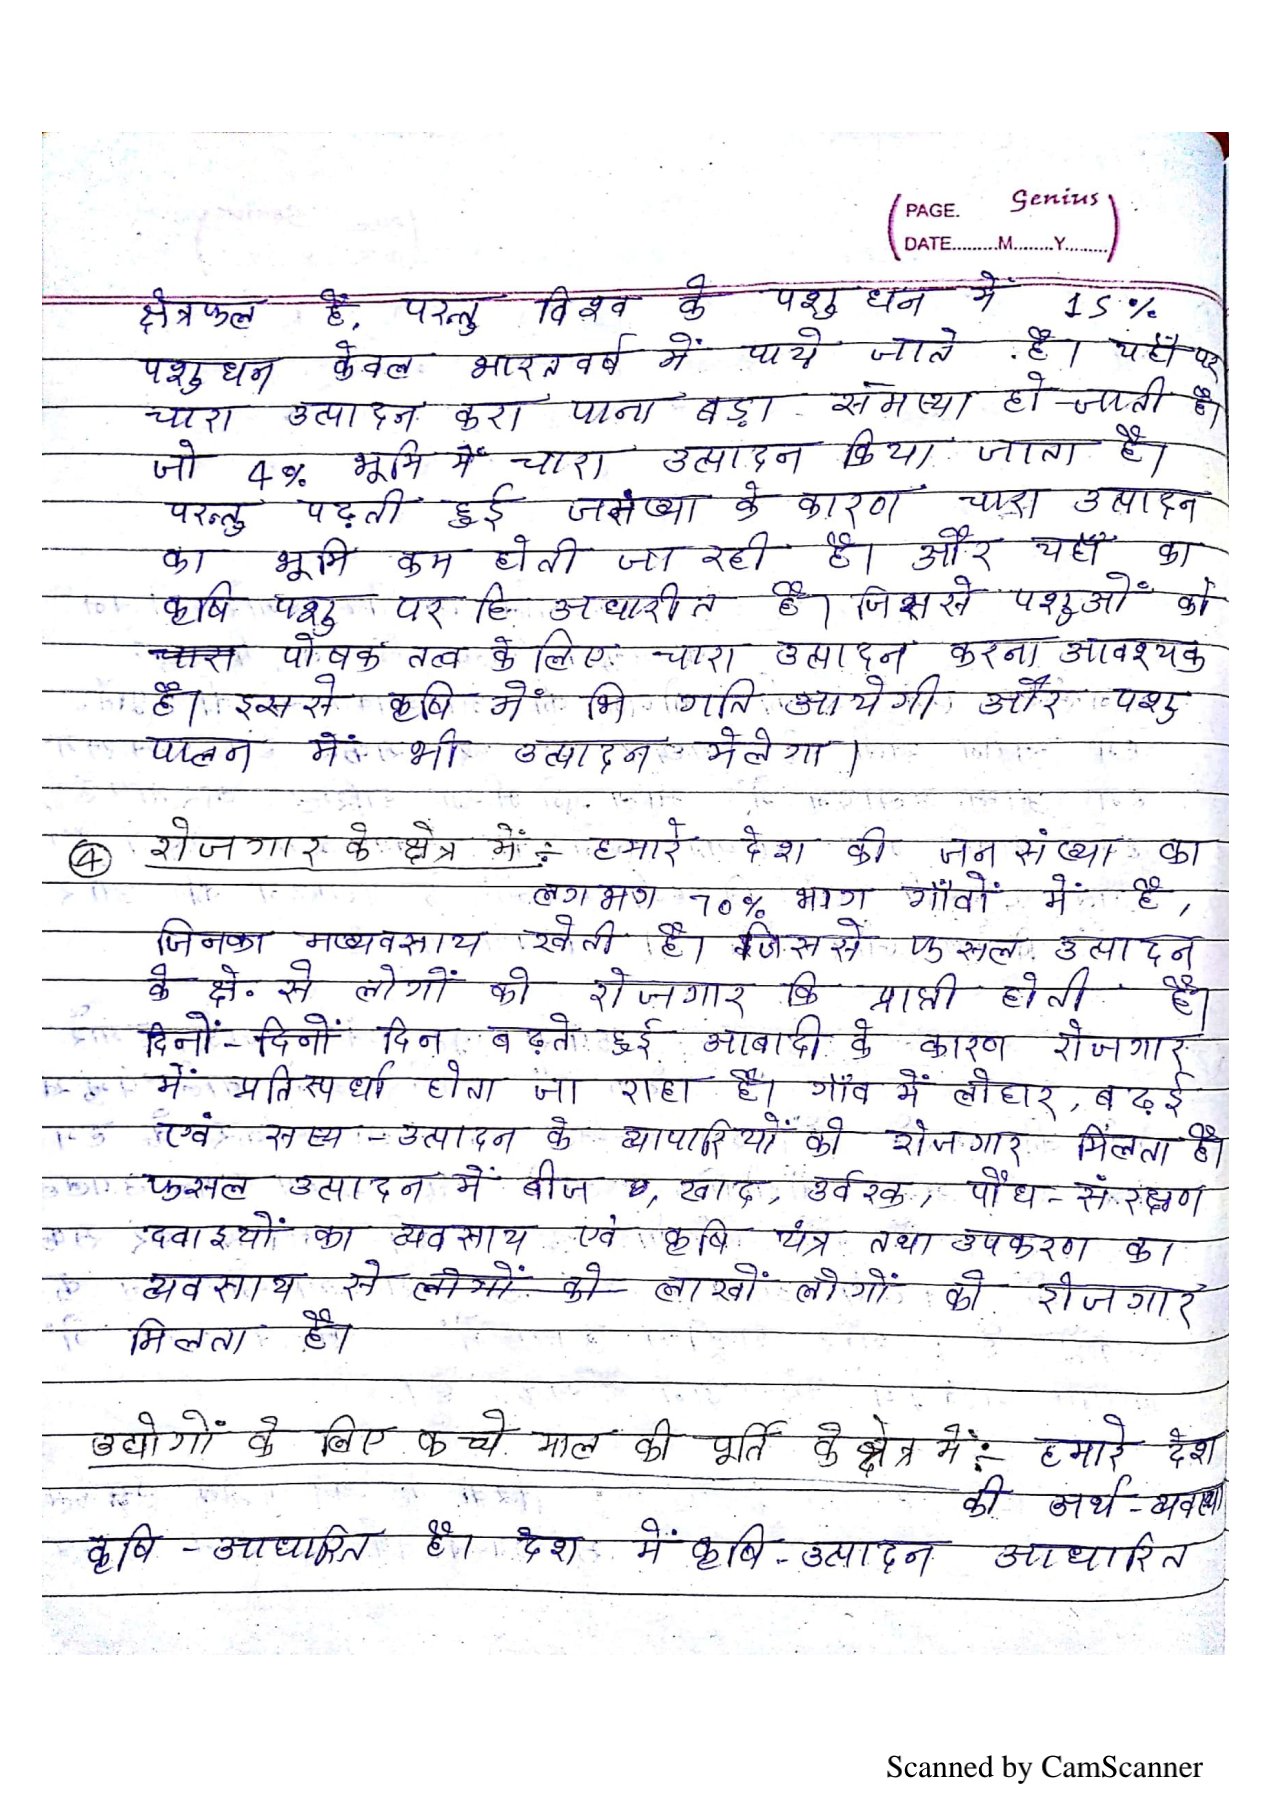 PAGE. Genius
DATE.........M........Y.........
क्षेत्रफल है, परन्तु विश्व के पशुधन में 15%
पशुधन केवल भारतवर्ष में पाये जाते है। यहाँ पर
चारा उत्पादन करा पाना बड़ा समस्या हो जाती है।
जो 4% भूमि में चारा उत्पादन किया जाता है।
परन्तु पढ़ती हुई जनसंख्या के कारण चारा उत्पादन
का भूमि कम होती जा रही है। और यहाँ का
कृषि पशु पर हि अधारीत है। जिससे पशुओं को
चारा पोषक तत्व के लिए चारा उत्पादन करना आवश्यक
है। इससे कृषि में भि गति आयेगी और पशु
पालन में भी उत्पादन मेलेगा।
④ रोजगार के क्षेत्र में:- हमारे देश की जनसंख्या का
लगभग 70% भाग गाँवों में है,
जिनका मख्यवसाय खेती है। जिससे फसल उत्पादन
के क्षे. से लोगों को रोजगार कि प्राप्ती होती है।
दिनों-दिनों दिन बढ़ते हुई आबादी के कारण रोजगार
में प्रतिस्पर्धा होता जा राहा है। गाँव में लोहार, बढ़ई
एवं सस्य-उत्पादन के व्यापारियों को रोजगार मिलता है।
फसल उत्पादन में बीज, खाद, उर्वरक, पौध-संरक्षण
दवाइयों का व्यवसाय एवं कृषि यंत्र तथा उपकरण का
व्यवसाय से लोगों को लाखों लोगों को रोजगार
मिलता है।
उद्योगों के लिए कच्चे माल की पूर्ति के क्षेत्र में:- हमारे देश
की अर्थ-व्यवस्था
कृषि-आधारित है। देश में कृषि-उत्पादन आधारित
Scanned by CamScanner